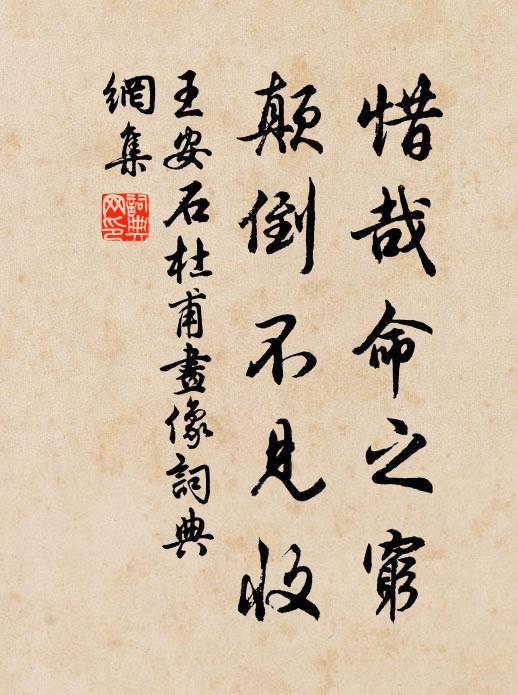 惜哉命之窮
顛倒不見收
王安石杜甫畫像詞典
網集
詞典
网印